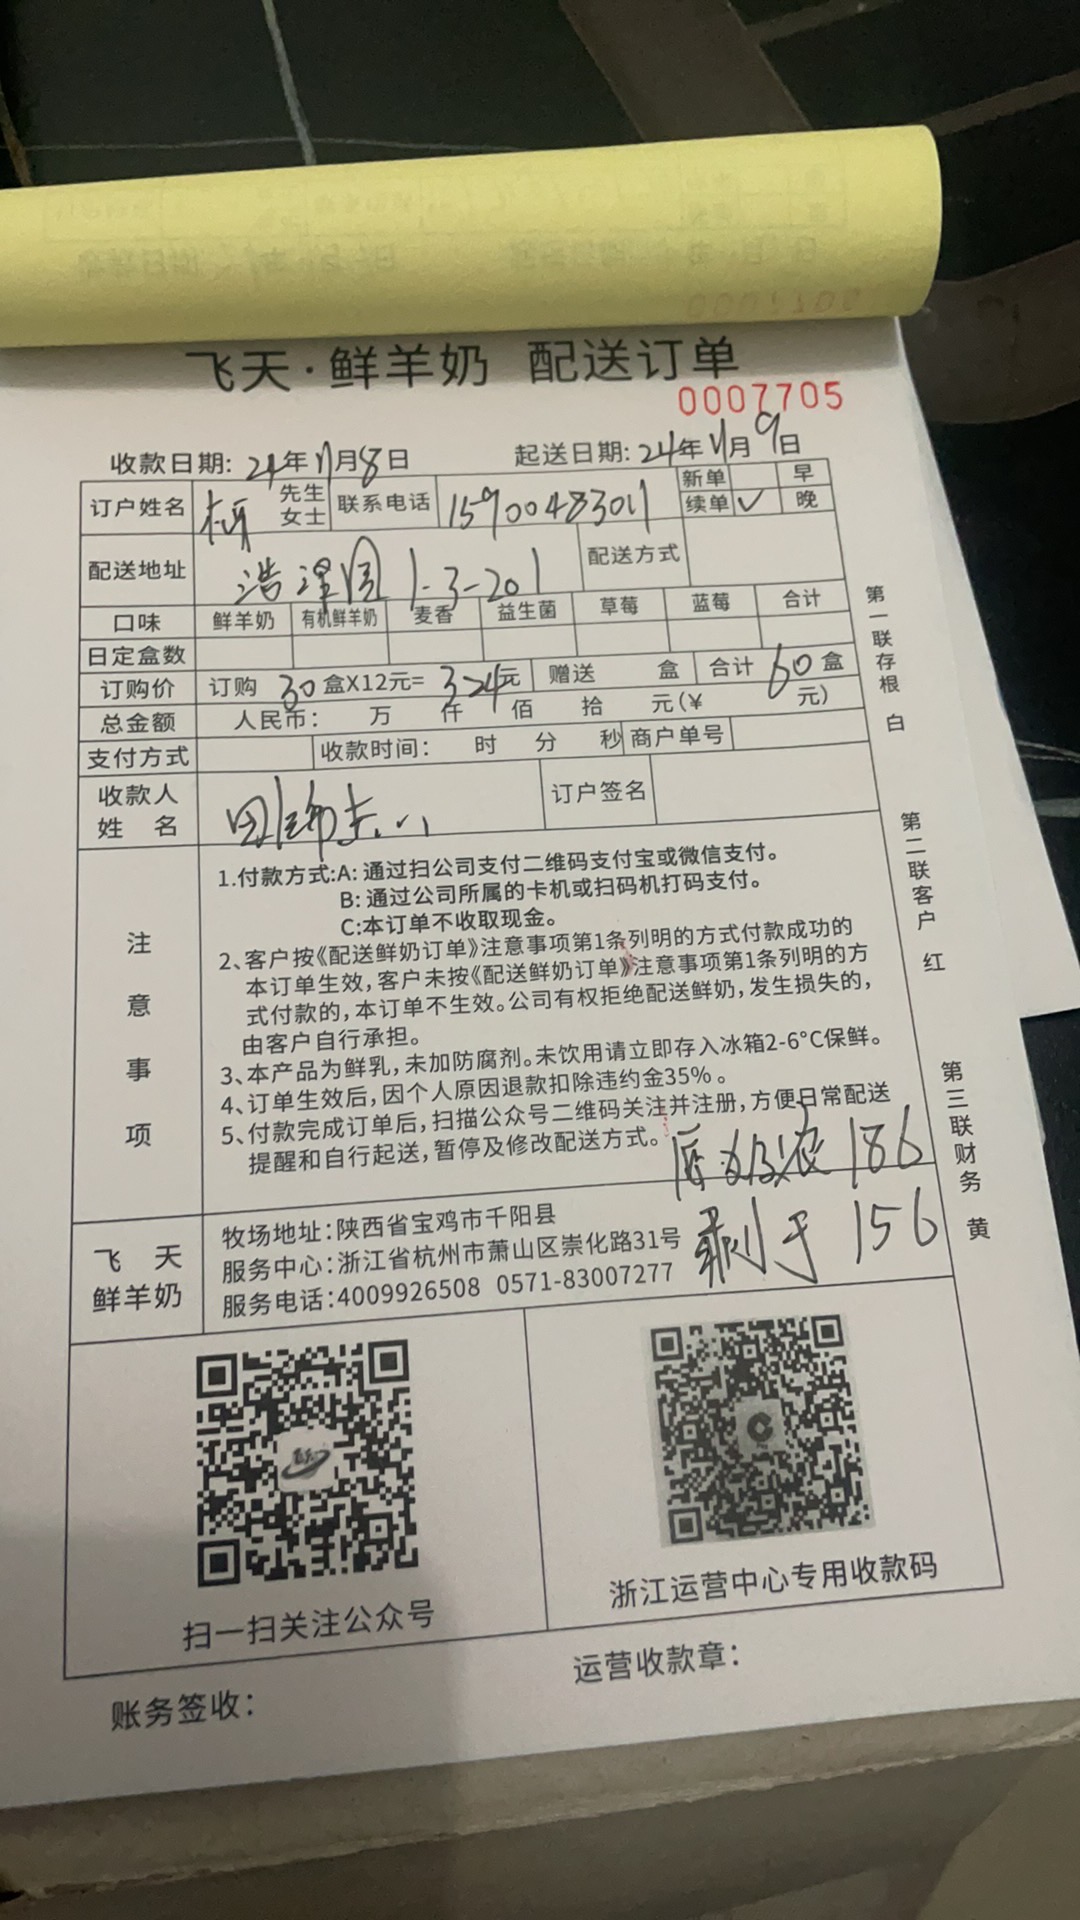 飞天·鲜羊奶 配送订单
0007705
收款日期: 24年11月8日 起送日期: 24年11月9日
订户姓名 先生 女士 联系电话 15900483011 新单 早
续单 ✓ 晚
配送地址 浩泽园 1-3-201 配送方式
口味 鲜羊奶 有机鲜羊奶 麦香 益生菌 草莓 蓝莓 合计
日定盒数
订购价 订购 30 盒X12元= 324元 赠送 盒 合计 60 盒
总金额 人民币: 万 仟 佰 拾 元(¥ 元)
支付方式 收款时间: 时 分 秒 商户单号
收款人
姓 名 订户签名
注意事项
1.付款方式:A: 通过扫公司支付二维码支付宝或微信支付。
B: 通过公司所属的卡机或扫码机打码支付。
C:本订单不收取现金。
2、客户按《配送鲜奶订单》注意事项第1条列明的方式付款成功的
本订单生效，客户未按《配送鲜奶订单》注意事项第1条列明的方
式付款的，本订单不生效。公司有权拒绝配送鲜奶，发生损失的，
由客户自行承担。
3、本产品为鲜乳，未加防腐剂。未饮用请立即存入冰箱2-6°C保鲜。
4、订单生效后，因个人原因退款扣除违约金35%。
5、付款完成订单后，扫描公众号二维码关注并注册，方便日常配送
提醒和自行起送，暂停及修改配送方式。
186
飞 天
鲜羊奶
牧场地址:陕西省宝鸡市千阳县
服务中心:浙江省杭州市萧山区崇化路31号
服务电话:4009926508 0571-83007277
剩于 156
扫一扫关注公众号
浙江运营中心专用收款码
账务签收:
运营收款章:
第一联存根 白
第二联客户 红
第三联财务 黄